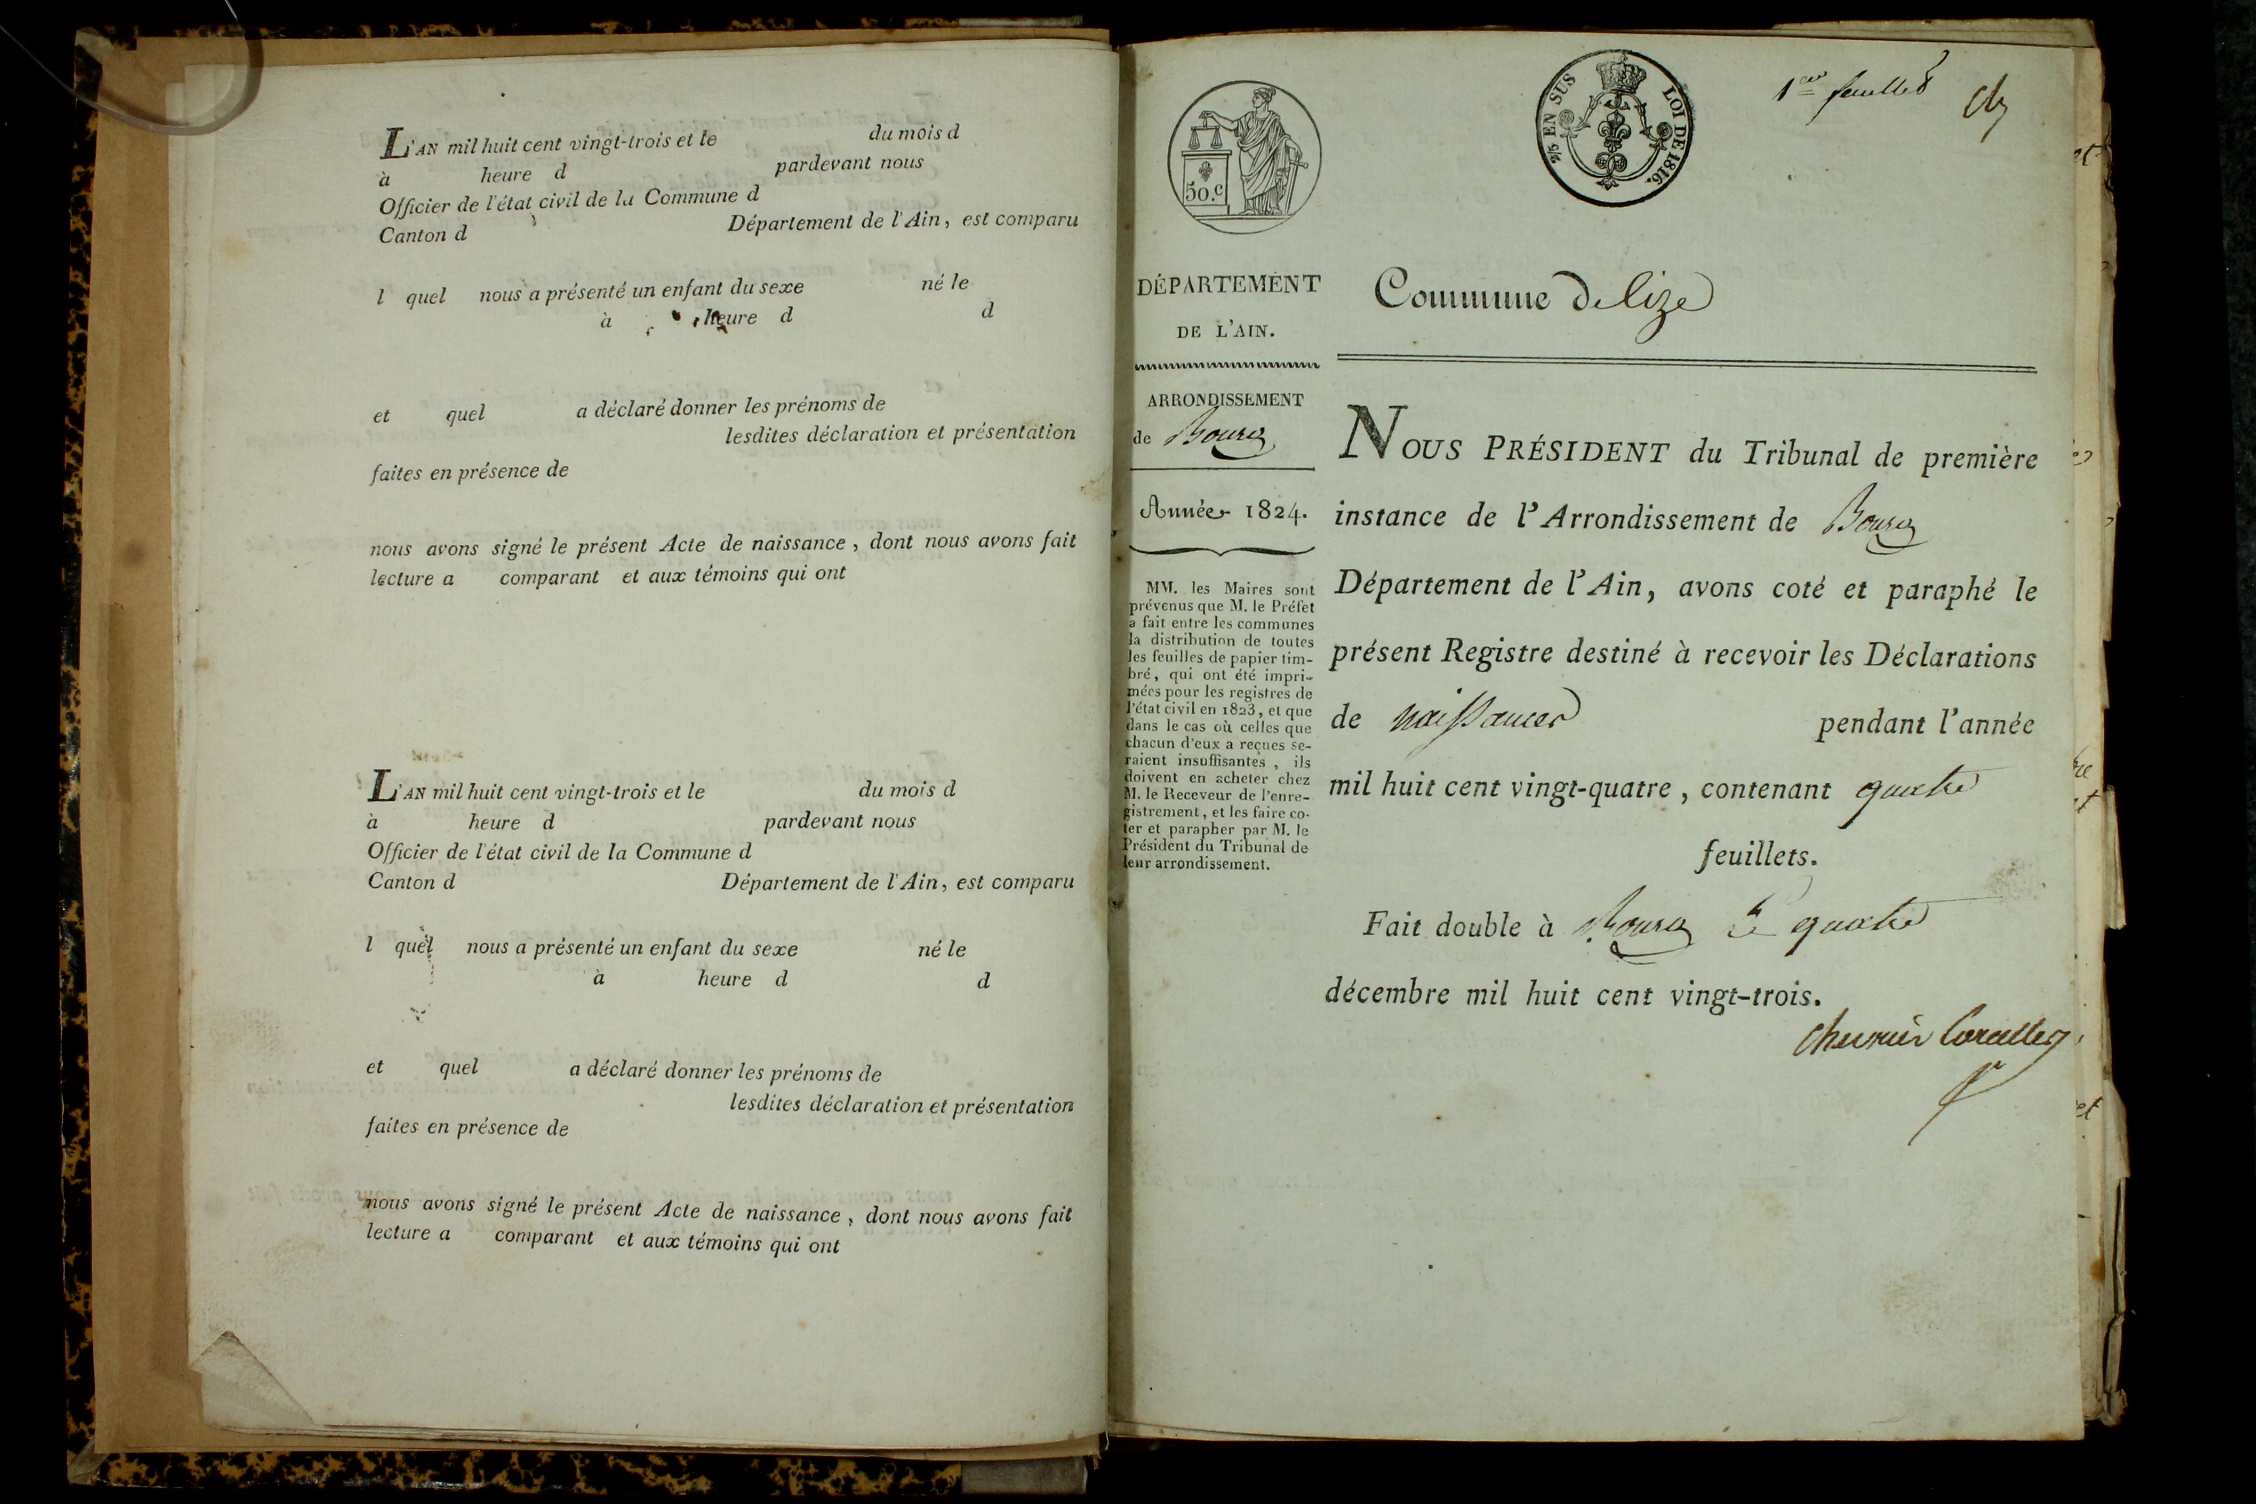 L'AN mil huit cent vingt-trois et le du mois d
à heure d pardevant nous
Officier de l'état civil de la Commune d
Canton d Département de l'Ain, est comparu
l quel nous a présenté un enfant du sexe né le
à heure d d
et quel a déclaré donner les prénoms de
lesdites déclaration et présentation
faites en présence de
nous avons signé le présent Acte de naissance, dont nous avons fait
lecture a comparant et aux témoins qui ont
L'AN mil huit cent vingt-trois et le du mois d
à heure d pardevant nous
Officier de l'état civil de la Commune d
Canton d Département de l'Ain, est comparu
l quel nous a présenté un enfant du sexe né le
à heure d d
et quel a déclaré donner les prénoms de
lesdites déclaration et présentation
faites en présence de
nous avons signé le présent Acte de naissance, dont nous avons fait
lecture a comparant et aux témoins qui ont
50.c
2/5 EN SUS LOI DE 1816.
1er feuillet
DÉPARTEMENT
DE L'AIN.
ARRONDISSEMENT
de Bourg
Année 1824.
MM. les Maires sont
prévenus que M. le Préfet
a fait entre les communes
la distribution de toutes
les feuilles de papier tim-
bré, qui ont été impri-
mées pour les registres de
l'état civil en 1823, et que
dans le cas où celles que
chacun d'eux a reçues se-
raient insuffisantes, ils
doivent en acheter chez
M. le Receveur de l'enre-
gistrement, et les faire co-
ter et parapher par M. le
Président du Tribunal de
leur arrondissement.
Commune de Cize
NOUS PRÉSIDENT du Tribunal de première
instance de l'Arrondissement de Bourg
Département de l'Ain, avons coté et paraphé le
présent Registre destiné à recevoir les Déclarations
de naissances pendant l'année
mil huit cent vingt-quatre, contenant quatre
feuillets.
Fait double à Bourg le quatre
décembre mil huit cent vingt-trois.
Chevrier Corcelles